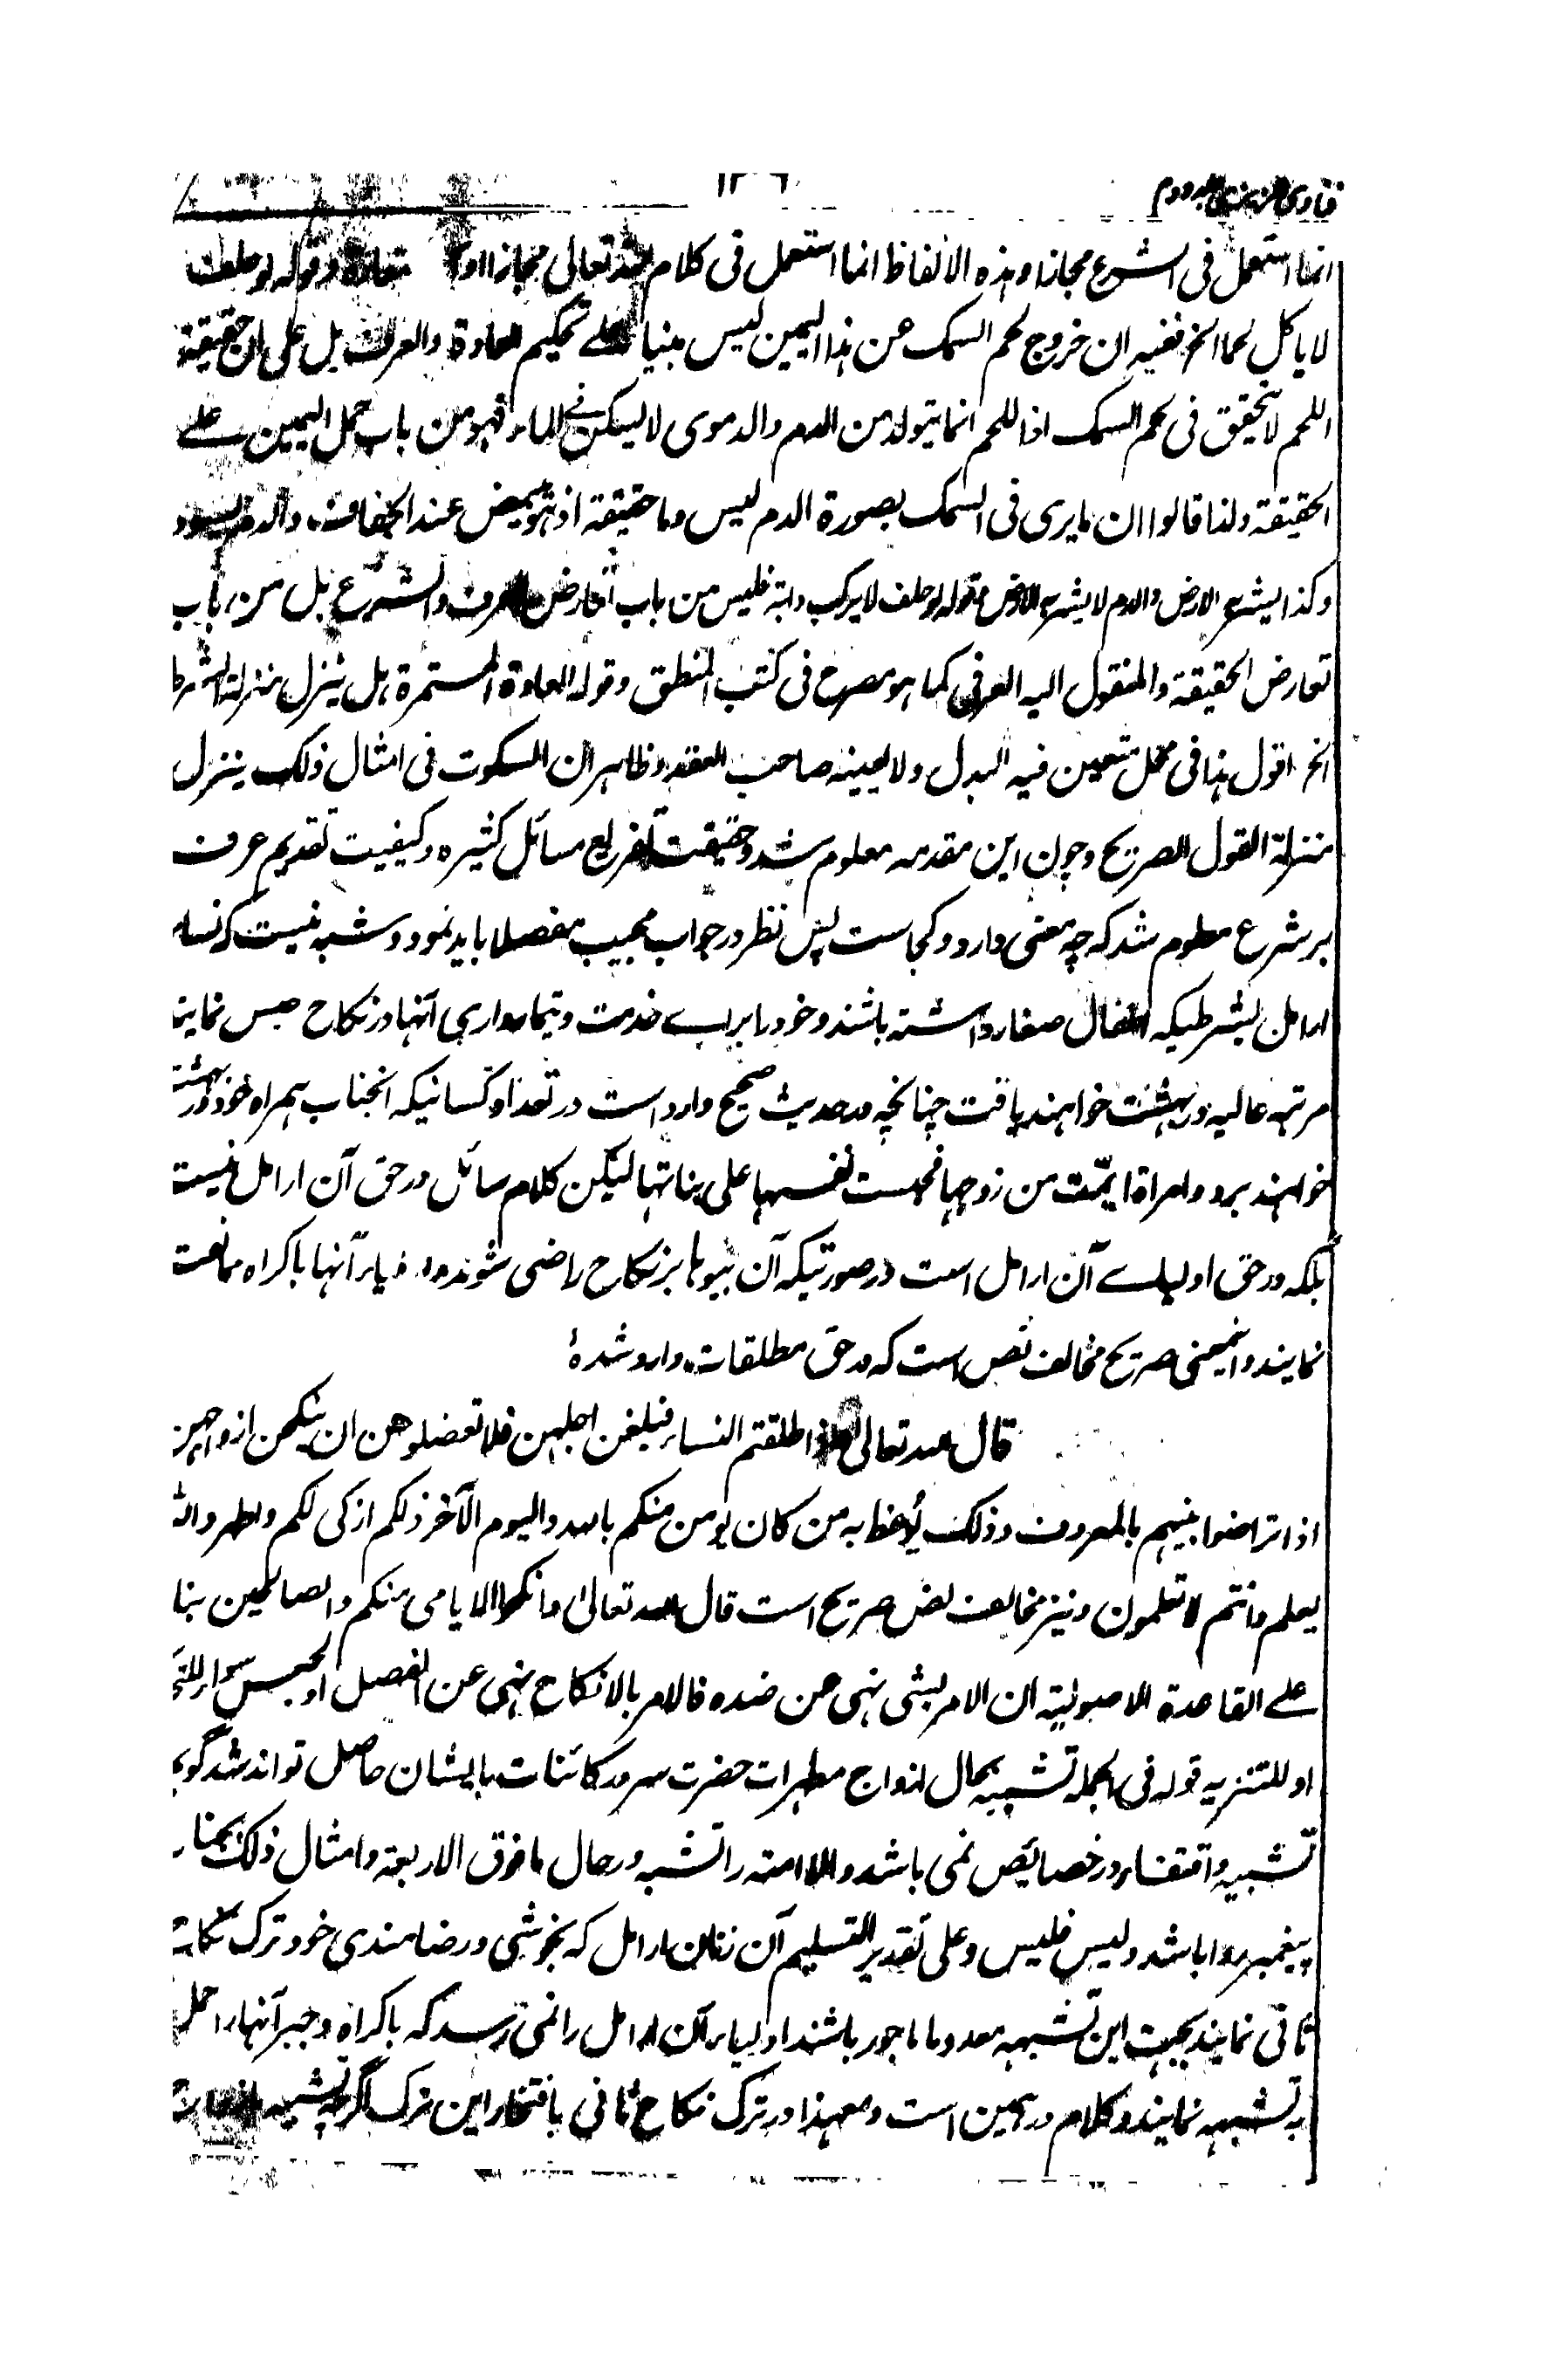 فتاوی عزیزی جلد دوم ۱۳۶
انما استعمل فی الشرع مجازا وهذه الالفاظ انما استعمل فی کلام الله تعالی مجازا او وقوله لو حلف
لا یاکل لحما الخ ففیه ان خروج لحم السمک من هذا الیمین لیس مبنیا علی تحکیم العادة والعرف بل علی ان حقیقة
اللحم لا تتحقق فی لحم السمک اذ اللحم انما یتولد من الدم والدموی لا یسکن فی الماء فهو من باب حمل الیمین علی
الحقیقة ولذا قالوا ان ما یری فی السمک بصورة الدم لیس دما حقیقة اذ هو یبیض عند الجفاف والدم یسود
وکذا یشربه الارض والدم لا یشربه الارض وقوله لو حلف لا یرکب دابة فلیس من باب تعارض العرف والشرع بل من باب
تعارض الحقیقة والمنقول الیه العرفی کما هو مصرح فی کتب المنطق وقوله العادة المستمرة هل ینزل منزلة الشرط
الخ اقول هذا فی محل متعین فیه البدل ولا یعینه صاحب العقد وظاهر ان السکوت فی امثال ذلک ینزل
منزلة القول الصریح وچون این مقدمه معلوم شد وحقیقت تفریع مسائل کثیره وکیفیت تقدیم عرف
بر شرع معلوم شد که چه معنی دارد وکجاست پس نظر در جواب مجیب مفصلا باید نمود وشبه نیست که نساء
ارامل بشرطیکه اطفال صغار داشته باشند وخود را برای خدمت وتیمارداری آنها در نکاح حبس نمایند
مرتبه عالیه در بهشت خواهند یافت چنانچه در حدیث صحیح وارد است در تعداد کسانیکه آنجناب همراه خود در بهشت
خواهند برد وامراة ایمت من زوجها فحبست نفسها علی بناتها لیکن کلام سائل در حق آن ارامل نیست
بلکه در حق اولیاے آن ارامل است در صورتیکه آن بیوها بر نکاح راضی شوند واولیاء آنها باکراه ممانعت
نمایند واینمعنی صریح مخالف نص است که در حق مطلقات وارد شده
قال الله تعالی واذا طلقتم النساء فبلغن اجلهن فلا تعضلوهن ان ینکحن ازواجهن
اذا تراضوا بینهم بالمعروف وذلک یوعظ به من کان یومن منکم بالله والیوم الآخر ذلکم ازکی لکم واطهر والله
یعلم وانتم لا تعلمون ونیز مخالف نص صریح است قال الله تعالی وانکحوا الایامی منکم والصالحین بناء
علے القاعدة الاصولیة ان الامر بشی نهی عن ضده فالامر بالانکاح نهی عن العضل او الحبس سواء للتحریم
او للتنزیه قوله فی الجمله تشبیه بحال ازواج مطهرات حضرت سرور کائنات بایشان حاصل تواند شد گویم
تشبیه واقتفاء در خصایص نمی باشد والا امته را تشبه در حال ما فوق الاربعة وامثال ذلک بجناب
پیغمبر روا باشد ولیس فلیس وعلی تقدیر التسلیم آن زنان ارامل که بخوشی ورضامندی خود ترک نکاح
ثانی نمایند بجهت این تشبه ممدوح وماجور باشند اولیاء آن ارامل را نمی رسد که باکراه وجبر آنها را حمل
بر تشبه نمایند وکلام در همین است ومعهذا در ترک نکاح ثانی بافتخار این ترک اگر چه تشبیه